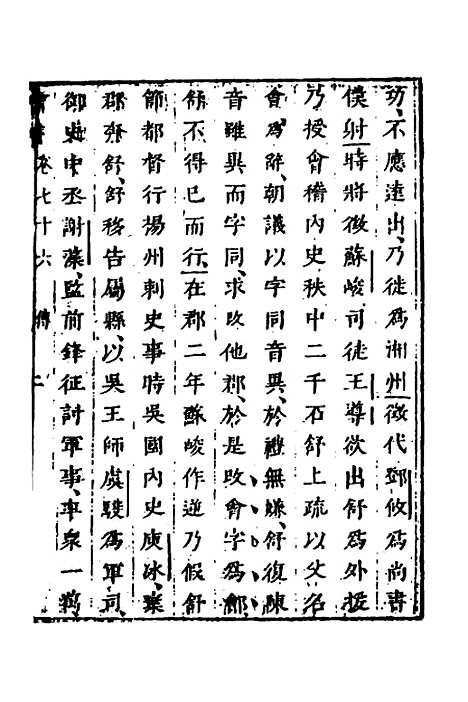 功、不應遠出、乃徙爲湘州、徵代鄧攸爲尚書
僕射、時將徵蘇峻、司徒王導欲出舒爲外援
乃授會稽內史秩中二千石舒上疏以父名
會爲辭、朝議以字同音異、於禮無嫌、舒復陳
音雖異而字同、求改他郡、於是改會字爲鄶、
舒不得已而行、在郡二年蘇峻作逆乃假舒
節都督行揚州刺史事時吳國內史庾冰、棄
郡奔舒、舒移告屬縣、以吳王師虞騑爲軍司、
御史中丞謝藻、監前鋒征討軍事、率衆一萬、
卷七十六 傳 二